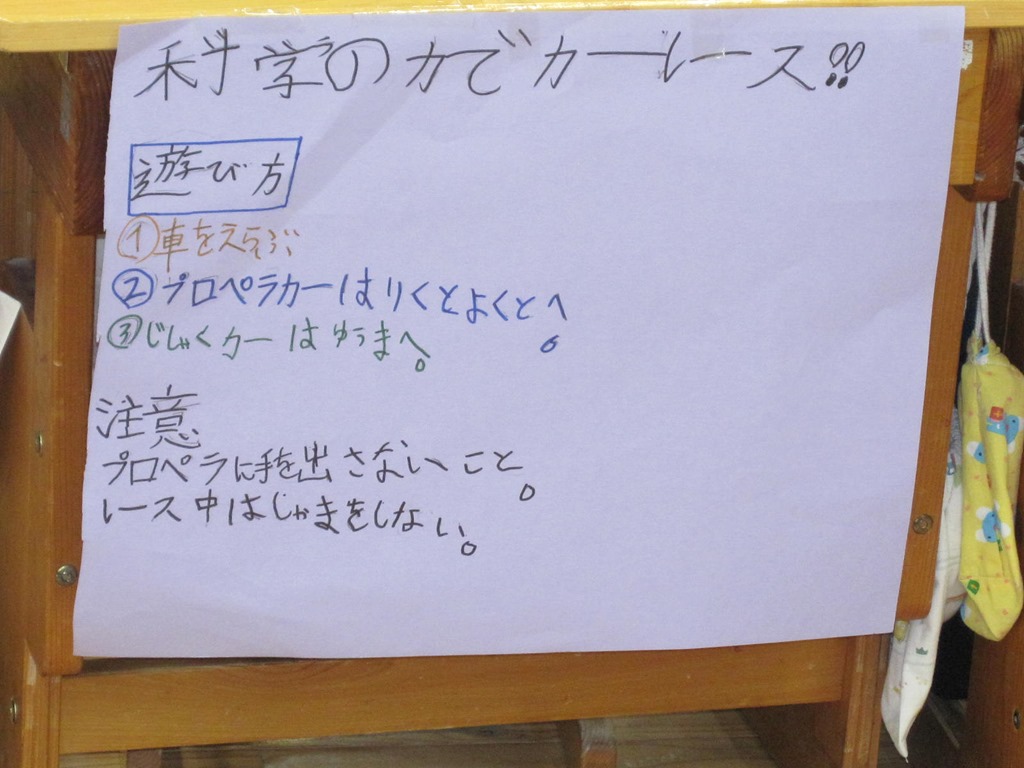 科学の力でカーレース!!
遊び方
①車をえらぶ
②プロペラカーはりくとよくとへ。
③じしゃくカーはゆうまへ。
注意
プロペラに手を出さないこと。
レース中はじゃまをしない。